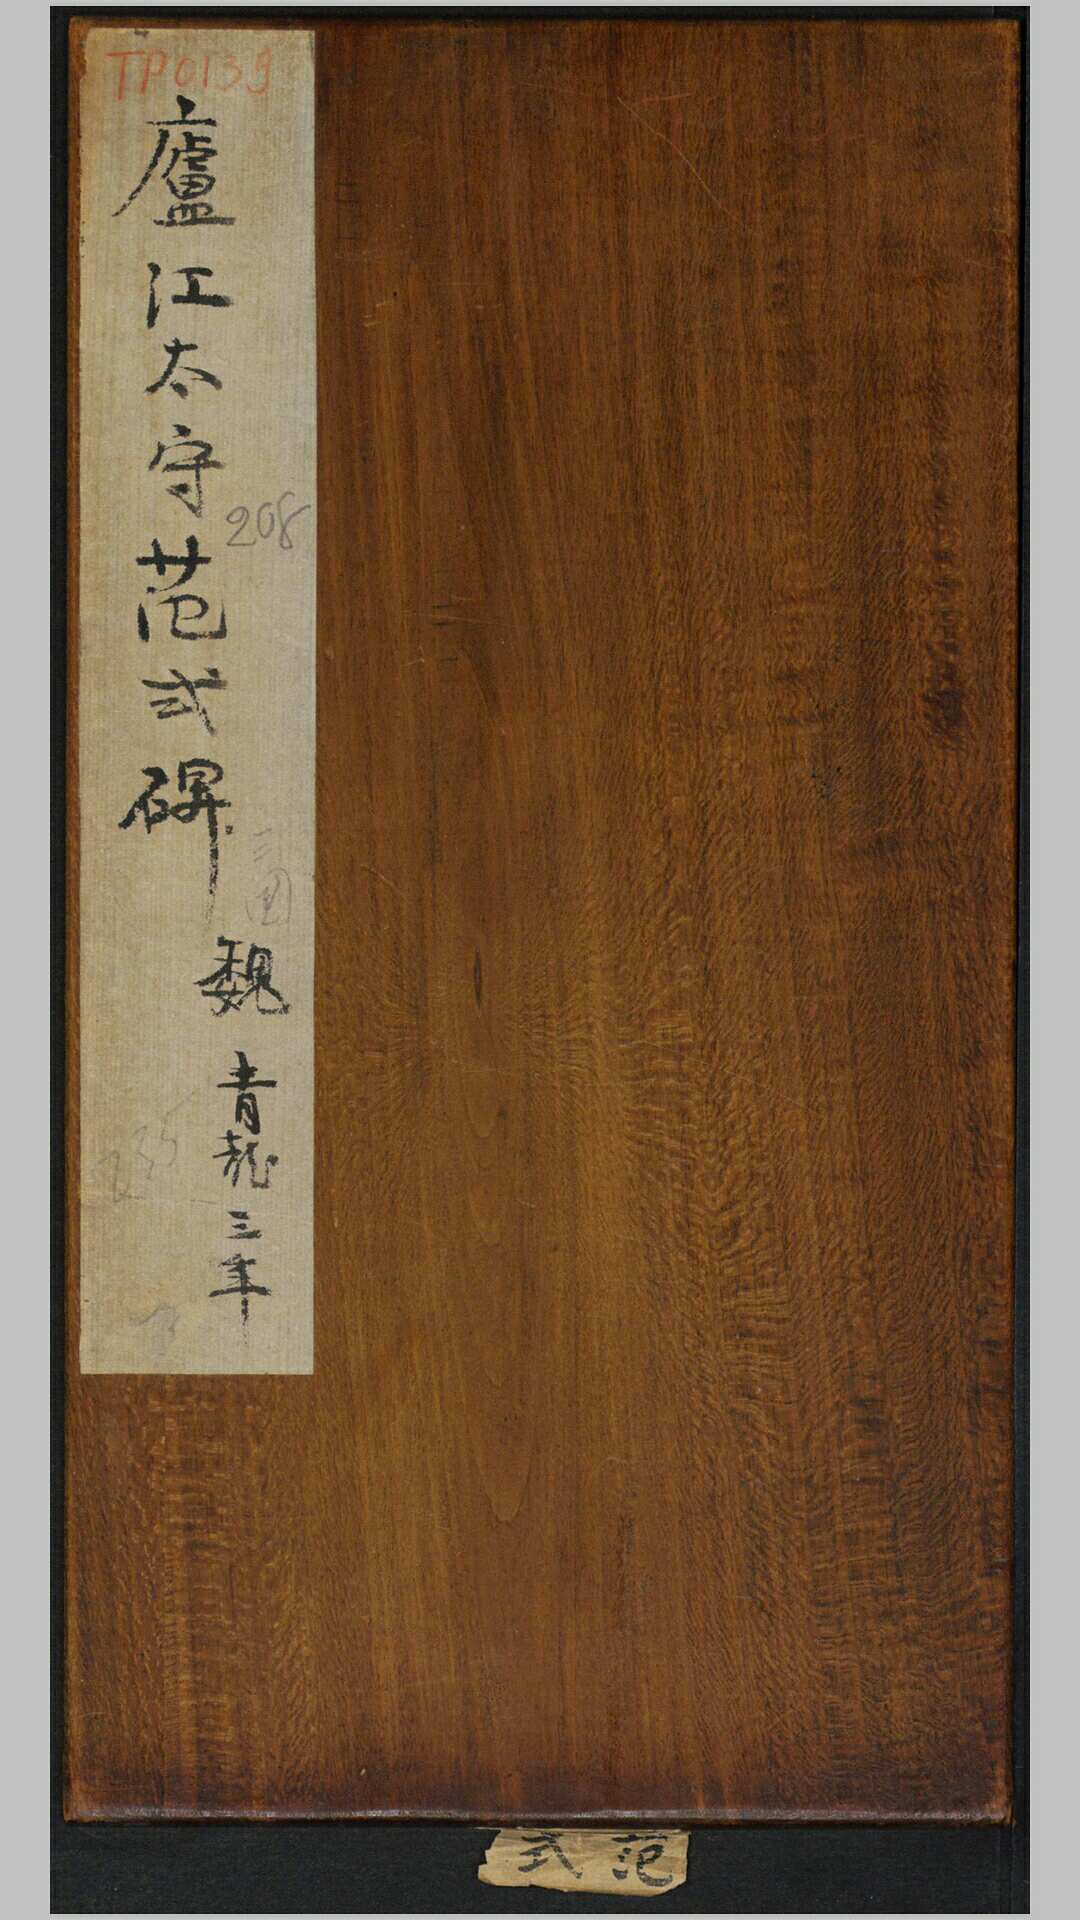 TP0139
廬江太守范式碑
208
三國
魏
青龍三年
范式